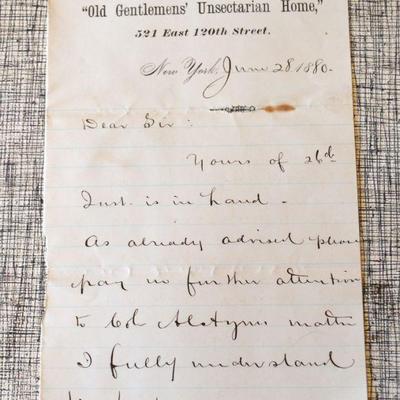 "Old Gentlemens' Unsectarian Home,"
521 East 120th Street.
New York, June 28 1880.
Dear Sir:
Yours of 26th
Inst. is in hand.
As already advised please
pay no further attention
to Col matter
I fully understand